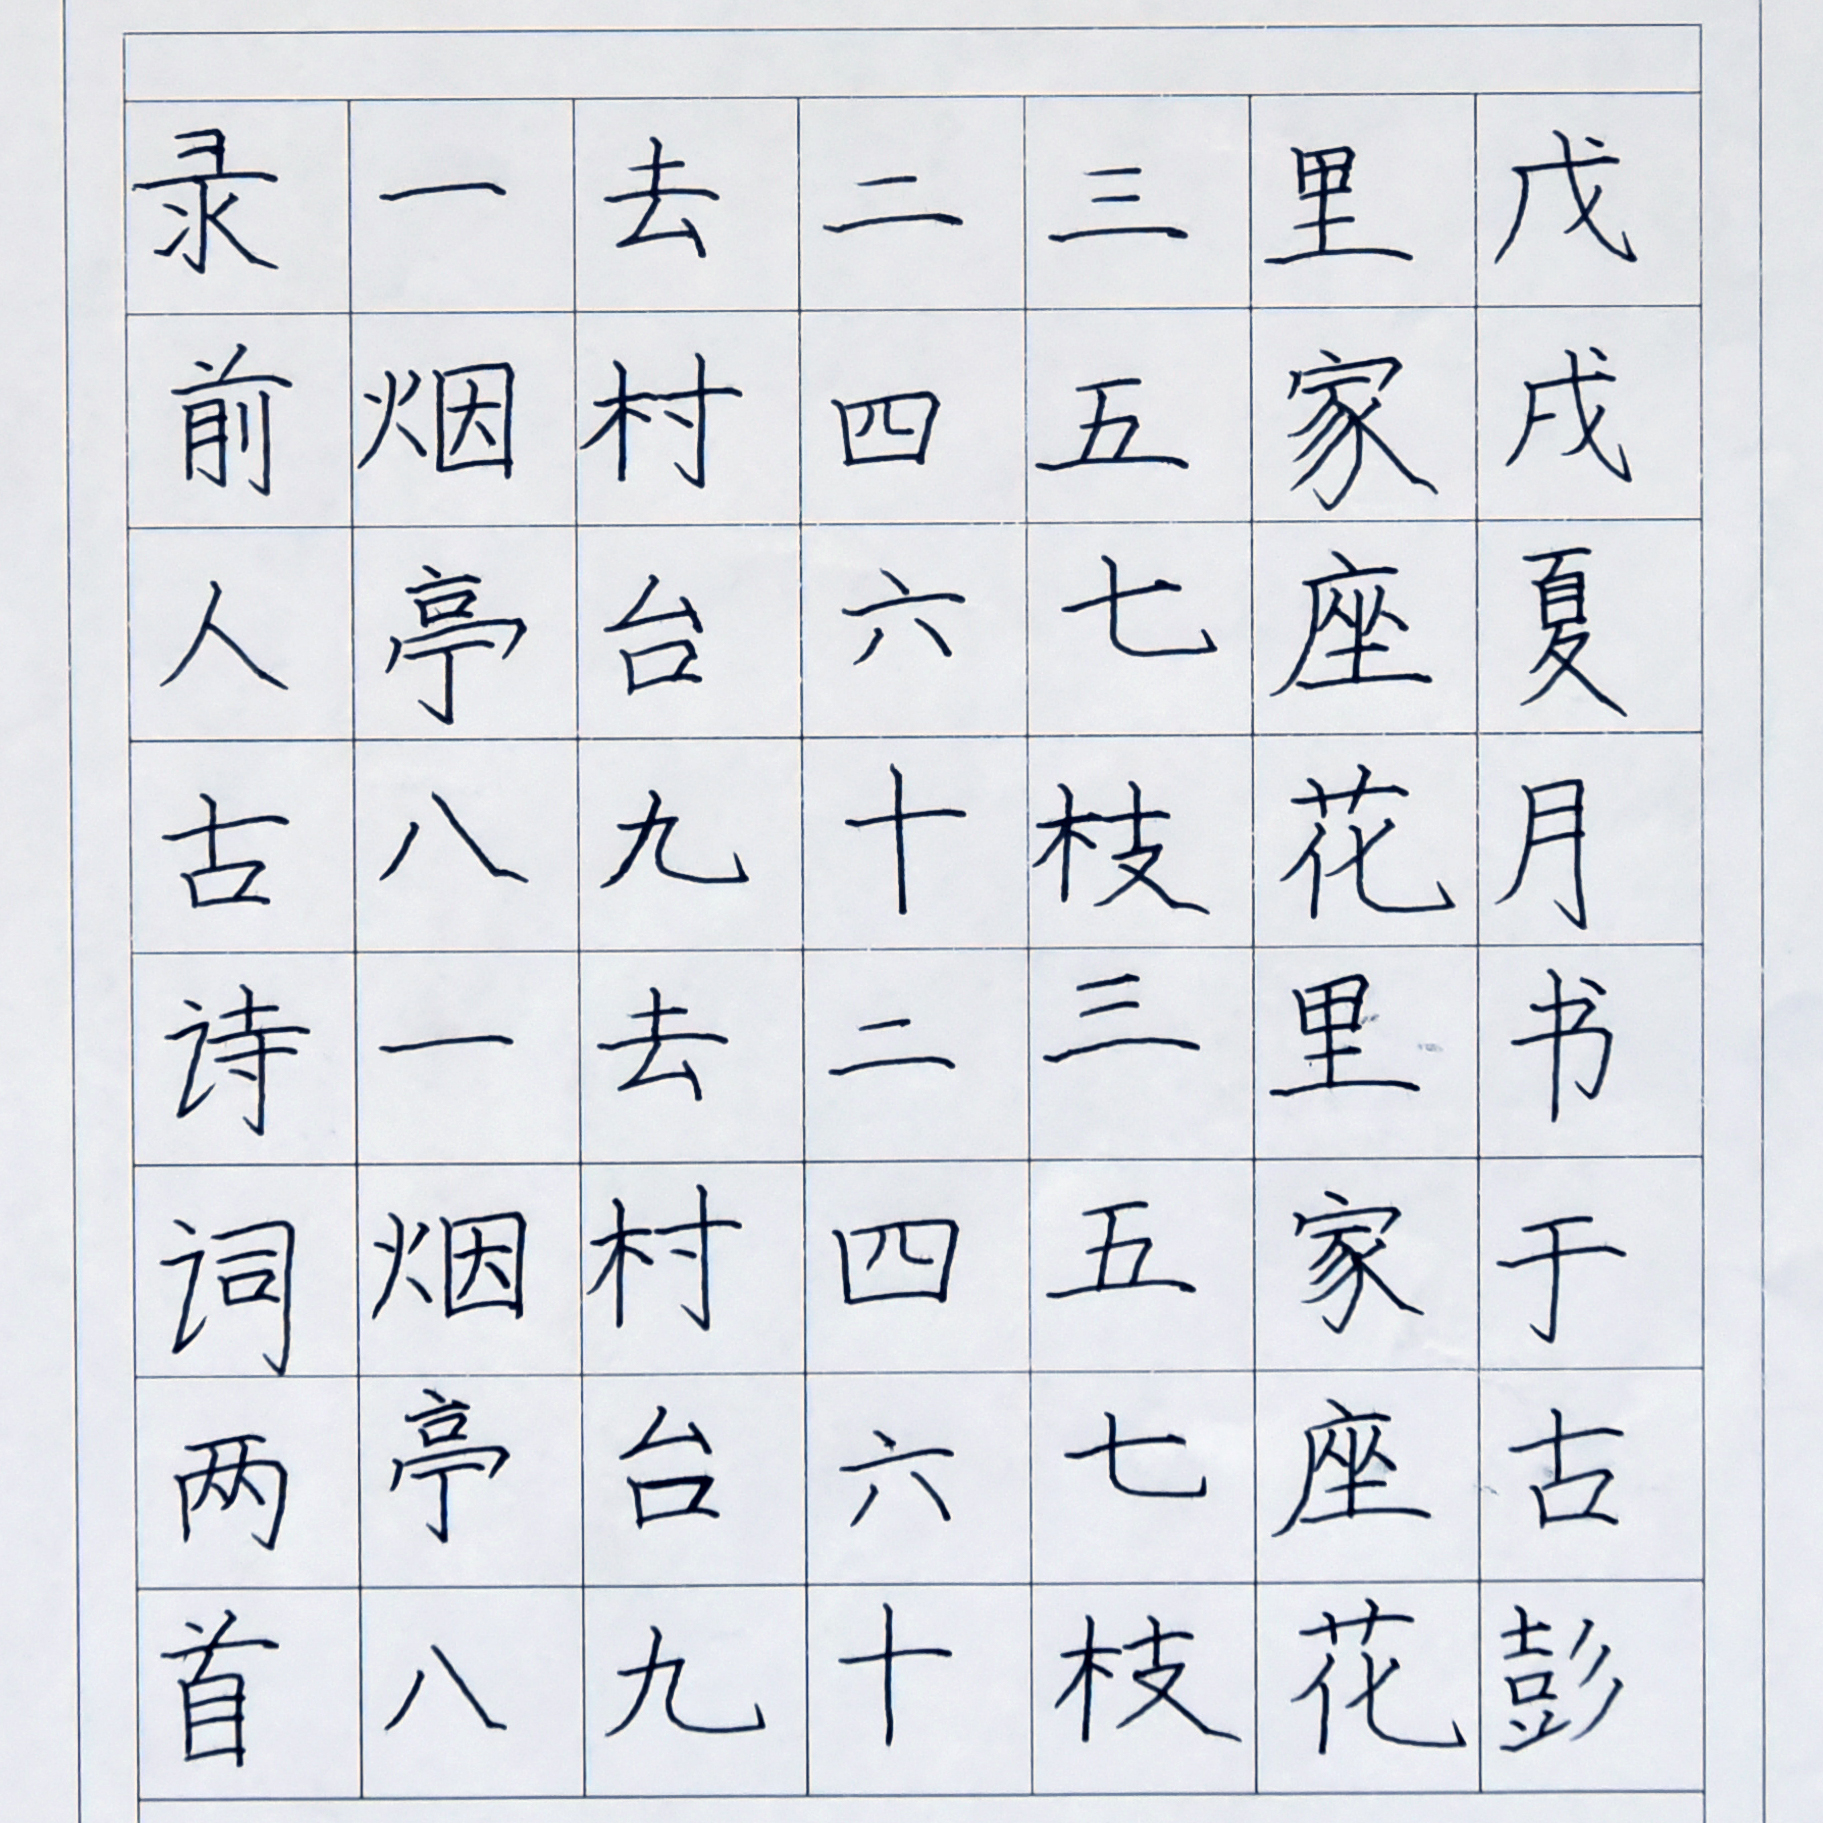 录前人古诗词两首
一去二三里
烟村四五家
亭台六七座
八九十枝花
一去二三里
烟村四五家
亭台六七座
八九十枝花
戊戌夏月书于古彭